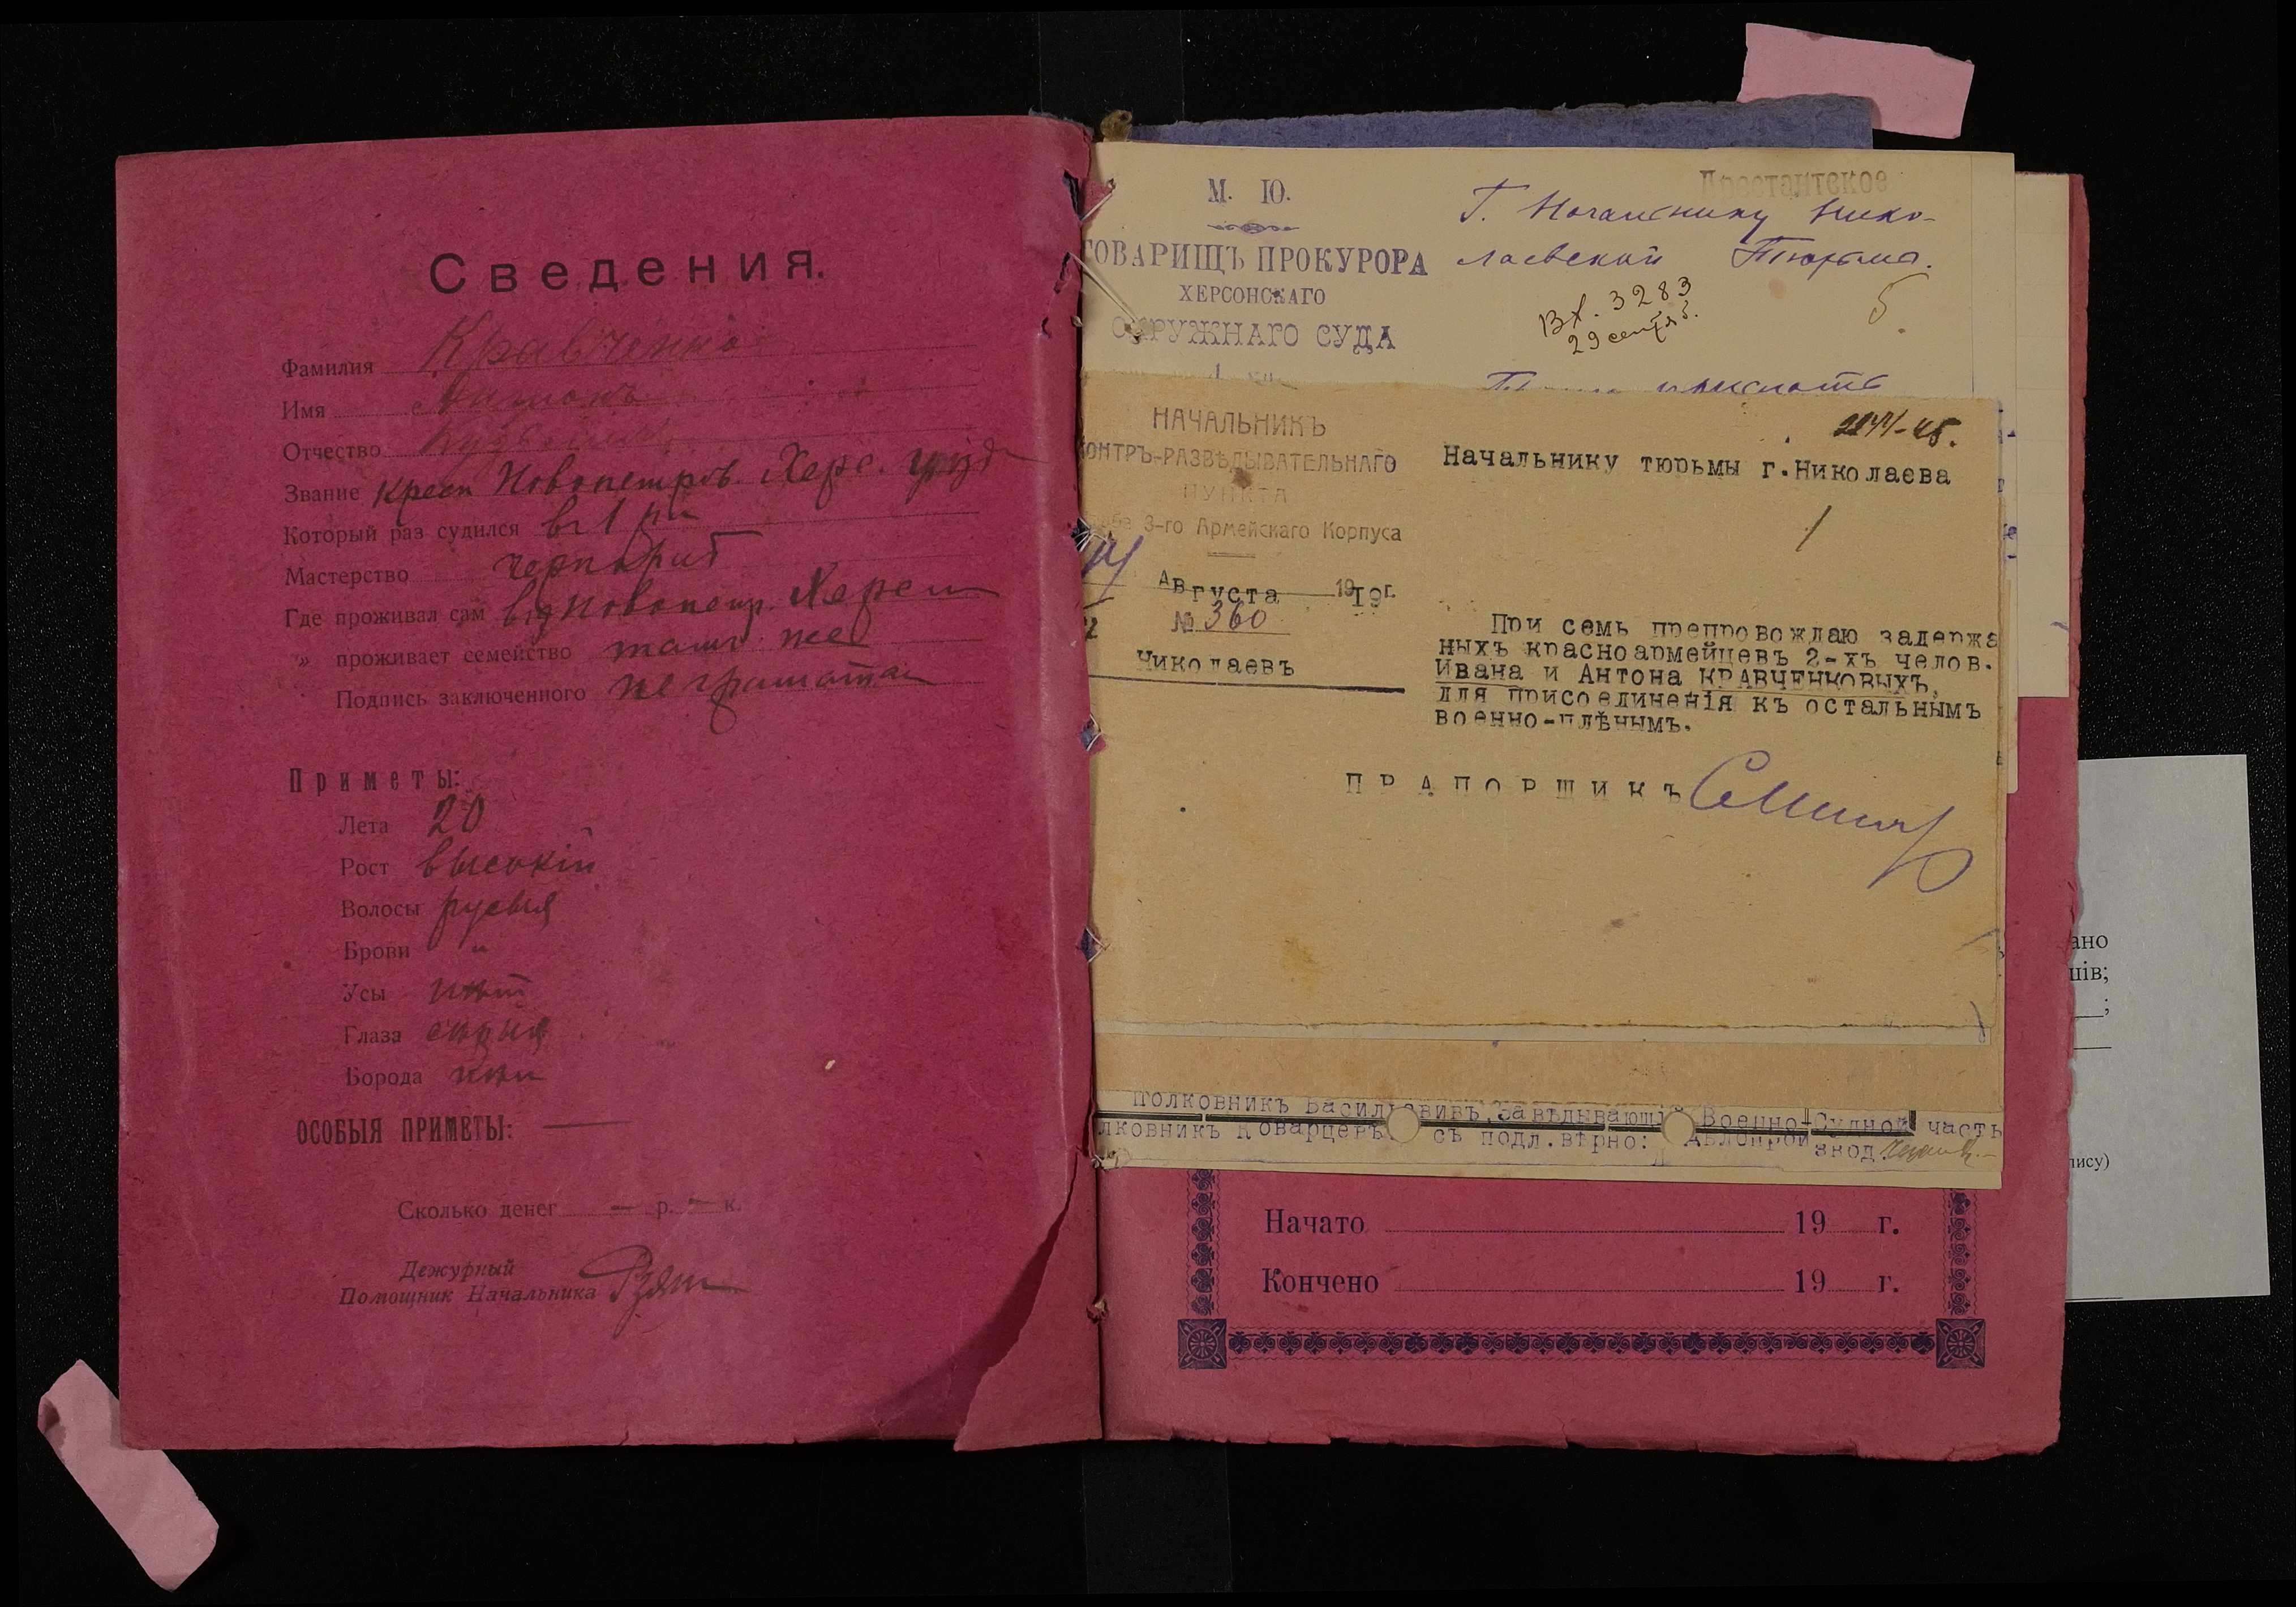 Сведения.
Фамилия Кравченко
Имя Антонъ
Отчество
Звание крест Новопетров. Херс. уезд
Который раз судился въ 1 раз
Мастерство чернораб
Где проживал сам Новопетр. Херсон
» проживает семейство тамъ же
Подпись заключенного не грамотен
Приметы:
Лета 20
Рост высокій
Волосы русыя
Брови "
Усы нѣт
Глаза серыя
Борода нѣт
ОСОБЫЯ ПРИМЕТЫ: —
Сколько денег — р. — к.
Дежурный
Помощник Начальника
М. Ю.
ТОВАРИЩЪ ПРОКУРОРА
ХЕРСОНСКАГО
ОКРУЖНАГО СУДА
Арестантское
Г. Начальнику Нико-
лаевской Тюрьмы.
Вх. 3283
29 сентяб.
5.
НАЧАЛЬНИКЪ
КОНТРЪ-РАЗВѢДЫВАТЕЛЬНАГО
ПУНКТА
3-го Армейскаго Корпуса
Августа 1919г.
№ 360
Николаевъ
Начальнику тюрьмы г.Николаева
1
При семъ препровождаю задержа
ныхъ красноармейцевъ 2-хъ челов.
Ивана и Антона КРАВЧЕНКОВЫХЪ,
для присоединенія къ остальнымъ
военно-плѣнымъ.
ПРАПОРЩИКЪ
Полковникъ Васильевъ, Завѣдывающій Военно-Судной часть
лковникъ Коварцевъ съ подл.вѣрно: Дѣлопрои
звод.
Начато 19 г.
Кончено 19 г.
ано
ів;
;
пису)